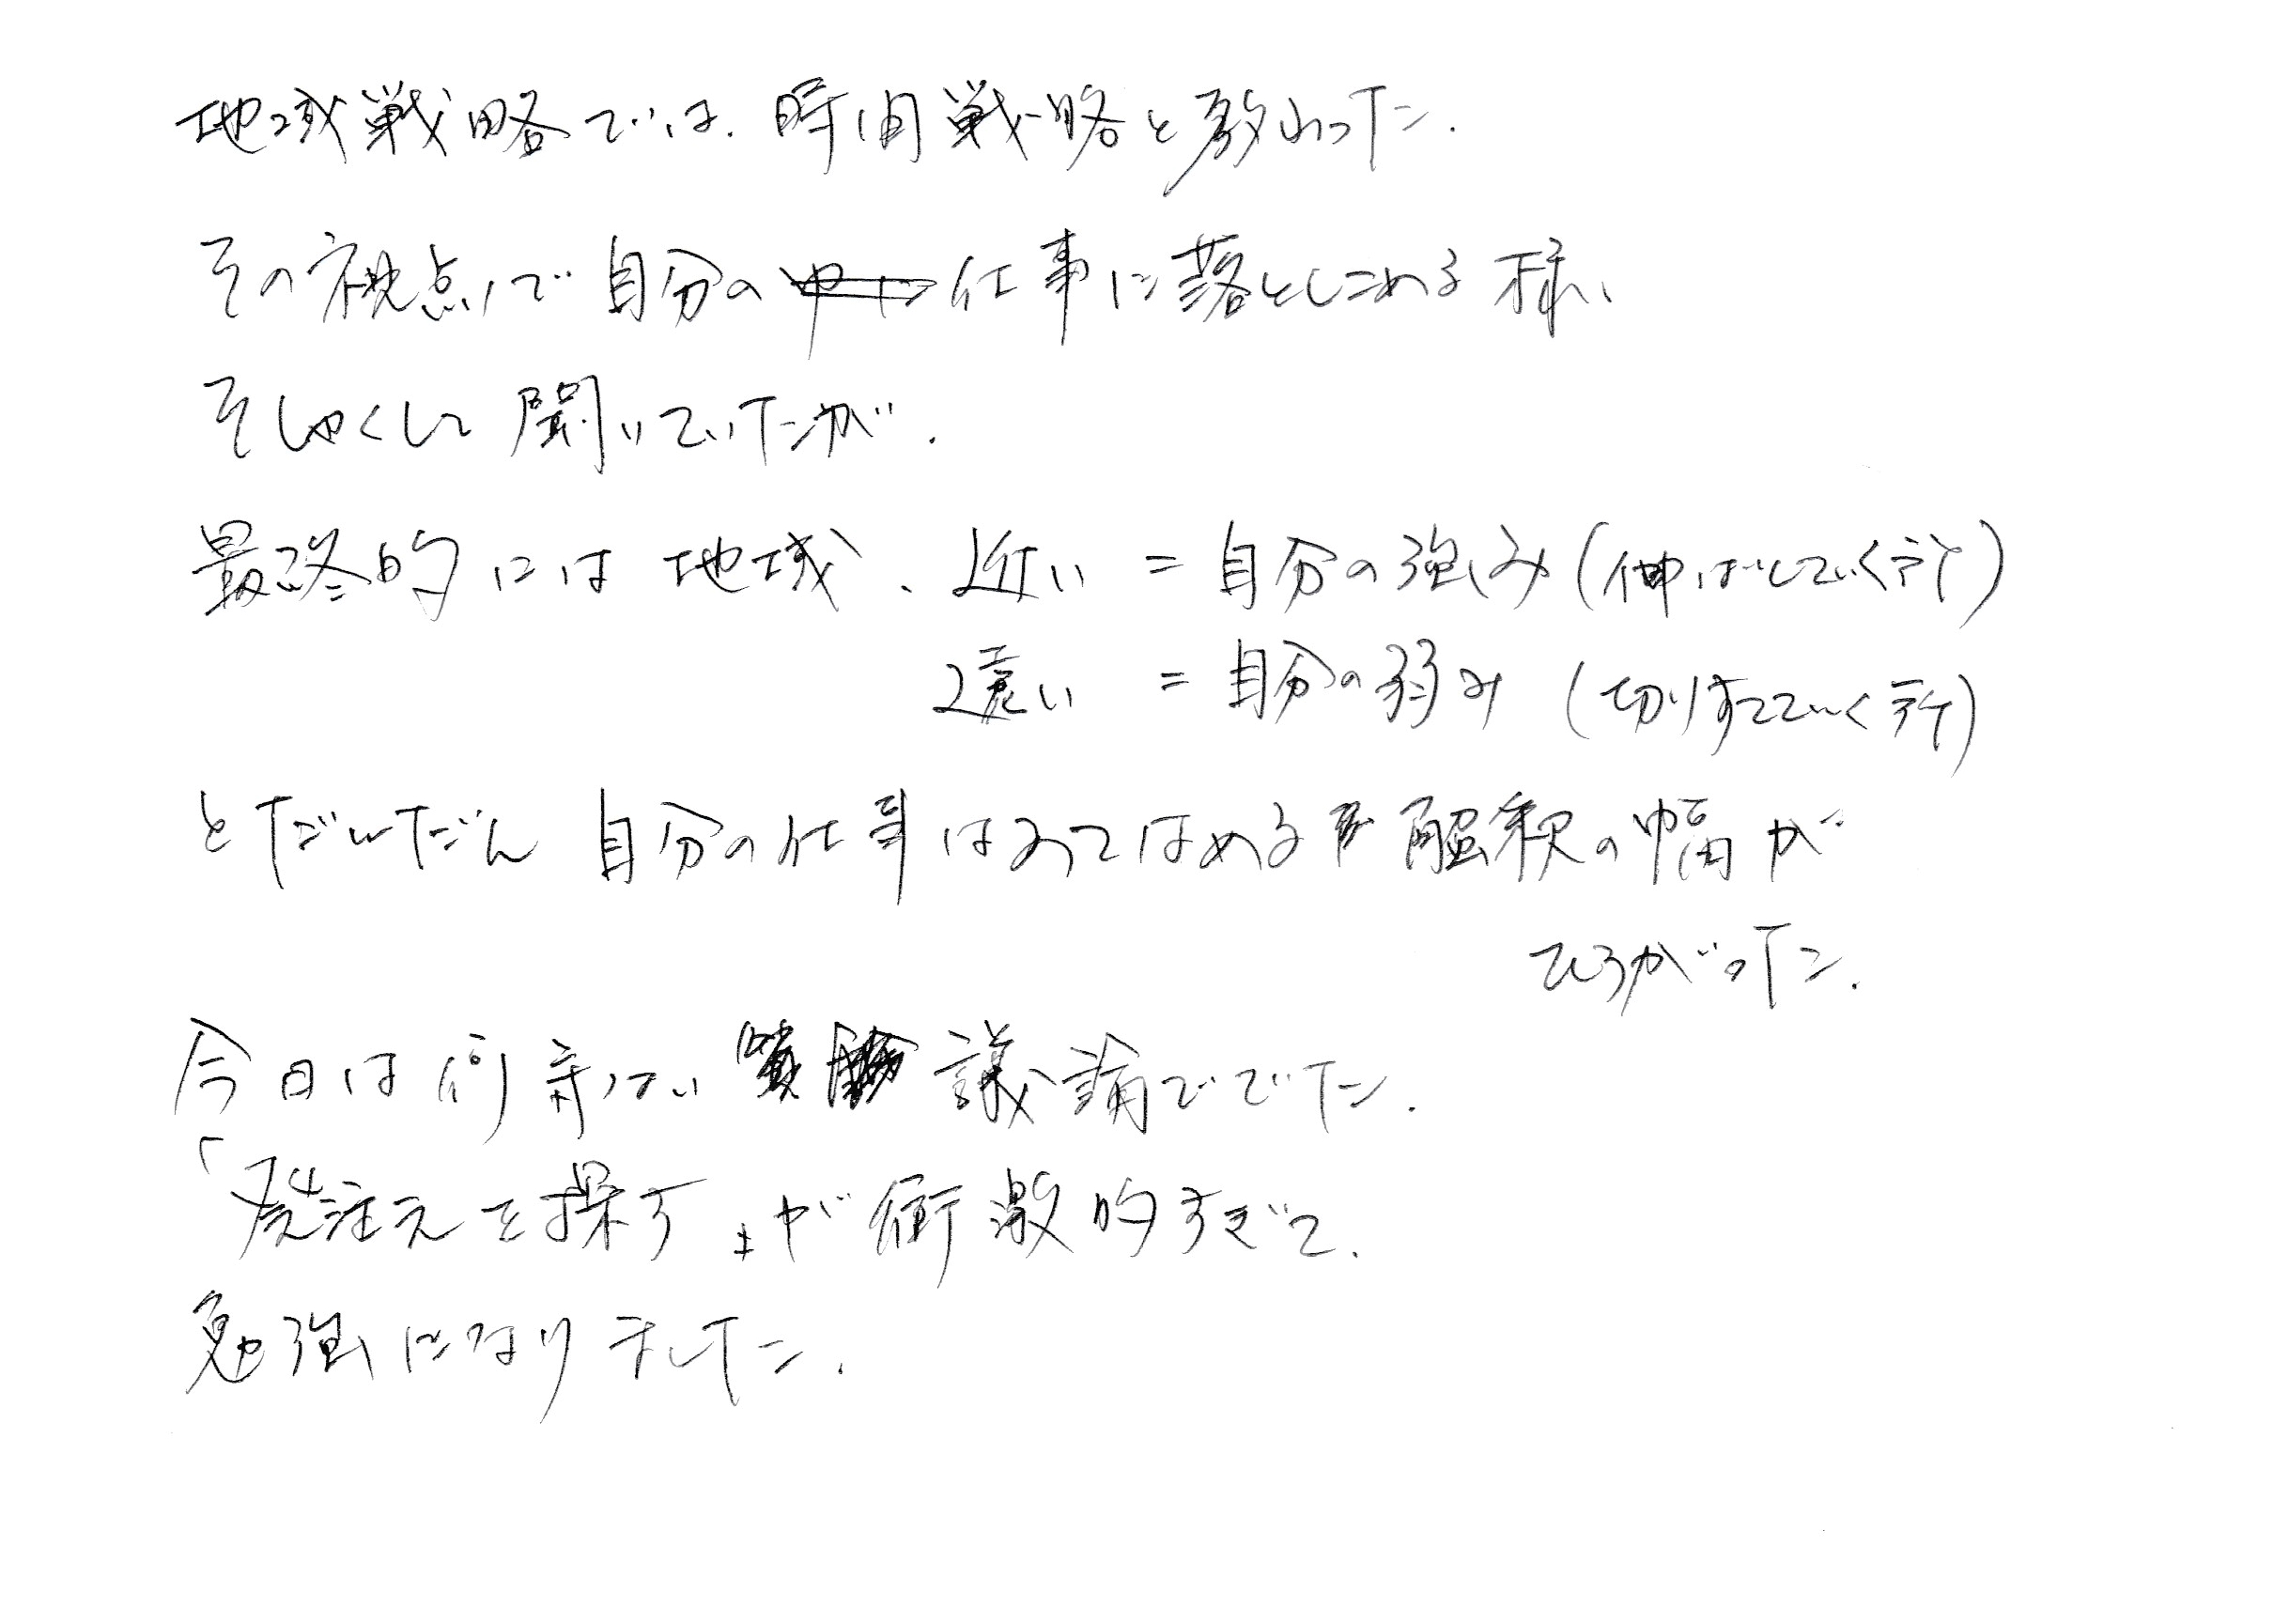 地域戦略では、時間戦略と教わった。
その視点で自分の仕事に落としこめる様、
そしゃくして聞いていたが、
最終的には地域、近い = 自分の強み (伸ばしていく所)
遠い = 自分の弱み (切りすてていく所)
とだんだん自分の仕事はあてはめる解釈の幅が
ひろがった。
今日は何気ない議論ででた、
「発注元を探す」が衝激的すぎて、
勉強になりました。